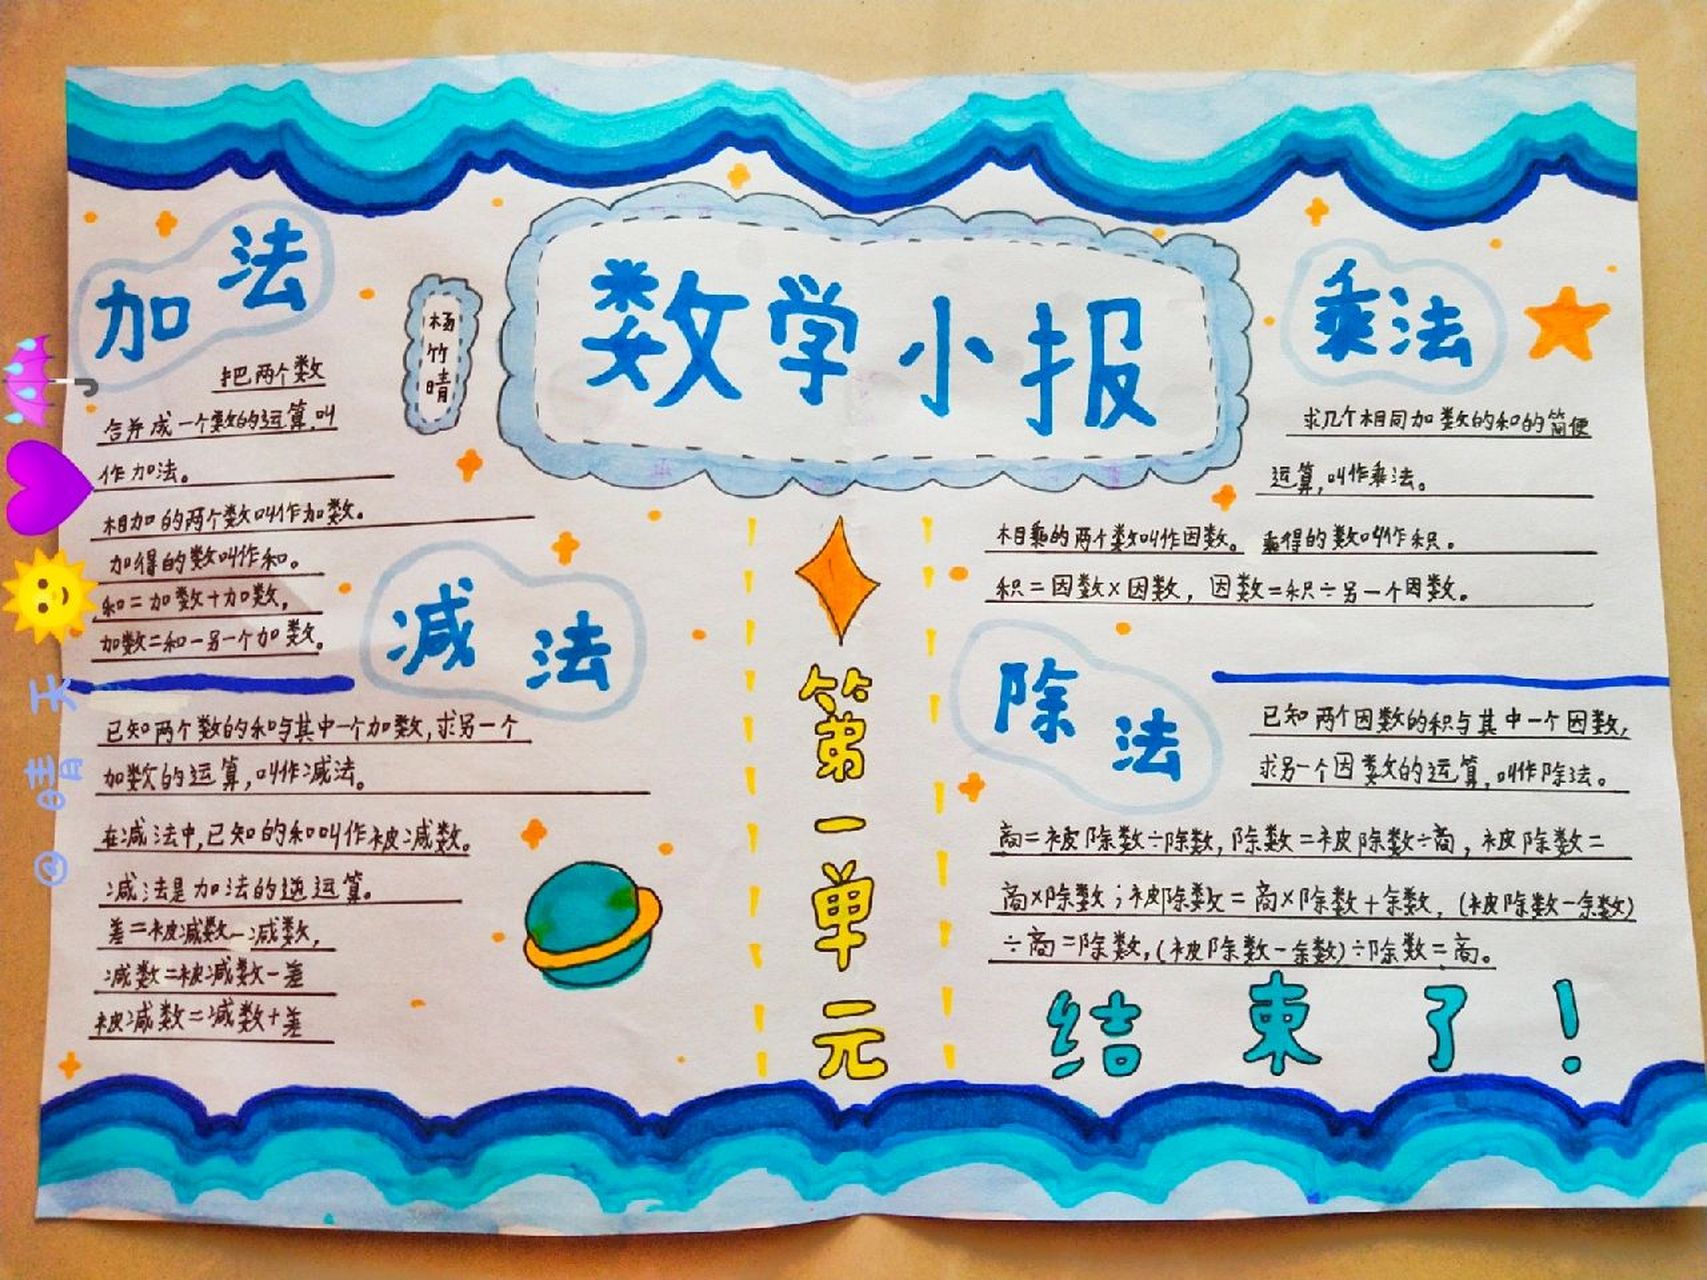 数学小报
杨竹晴
加法
把两个数
合并成一个数的运算,叫
作加法。
相加的两个数叫作加数。
加得的数叫作和。
和=加数+加数,
加数=和-另一个加数。
减法
已知两个数的和与其中一个加数,求另一个
加数的运算,叫作减法。
在减法中,已知的和叫作被减数。
减法是加法的逆运算。
差=被减数-减数,
减数=被减数-差
被减数=减数+差
第一单元
乘法
求几个相同加数的和的简便
运算,叫作乘法。
相乘的两个数叫作因数。乘得的数叫作积。
积=因数×因数,因数=积÷另一个因数。
除法
已知两个因数的积与其中一个因数,
求另一个因数的运算,叫作除法。
商=被除数÷除数,除数=被除数÷商,被除数=
商×除数;被除数=商×除数+余数,(被除数-余数)
÷商=除数,(被除数-余数)÷除数=商。
结束了!
@晴天